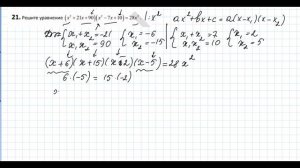 21. Решите уравнение (x² + 21x + 90)(x² − 7x + 10) = 28x². | : x² ax²+bx+c = a(x-x₁)(x-x₂)
{ x₁+x₂ = -21 { x₁ = -6 | { x₁+x₂ = 7 { x₁ = 2
x₁x₂ = 90 x₂ = -15 x₁x₂ = 10 x₂ = 5
(x+6)(x+15)(x-2)(x-5) = 28x²
6·(-5) = 15·(-2)